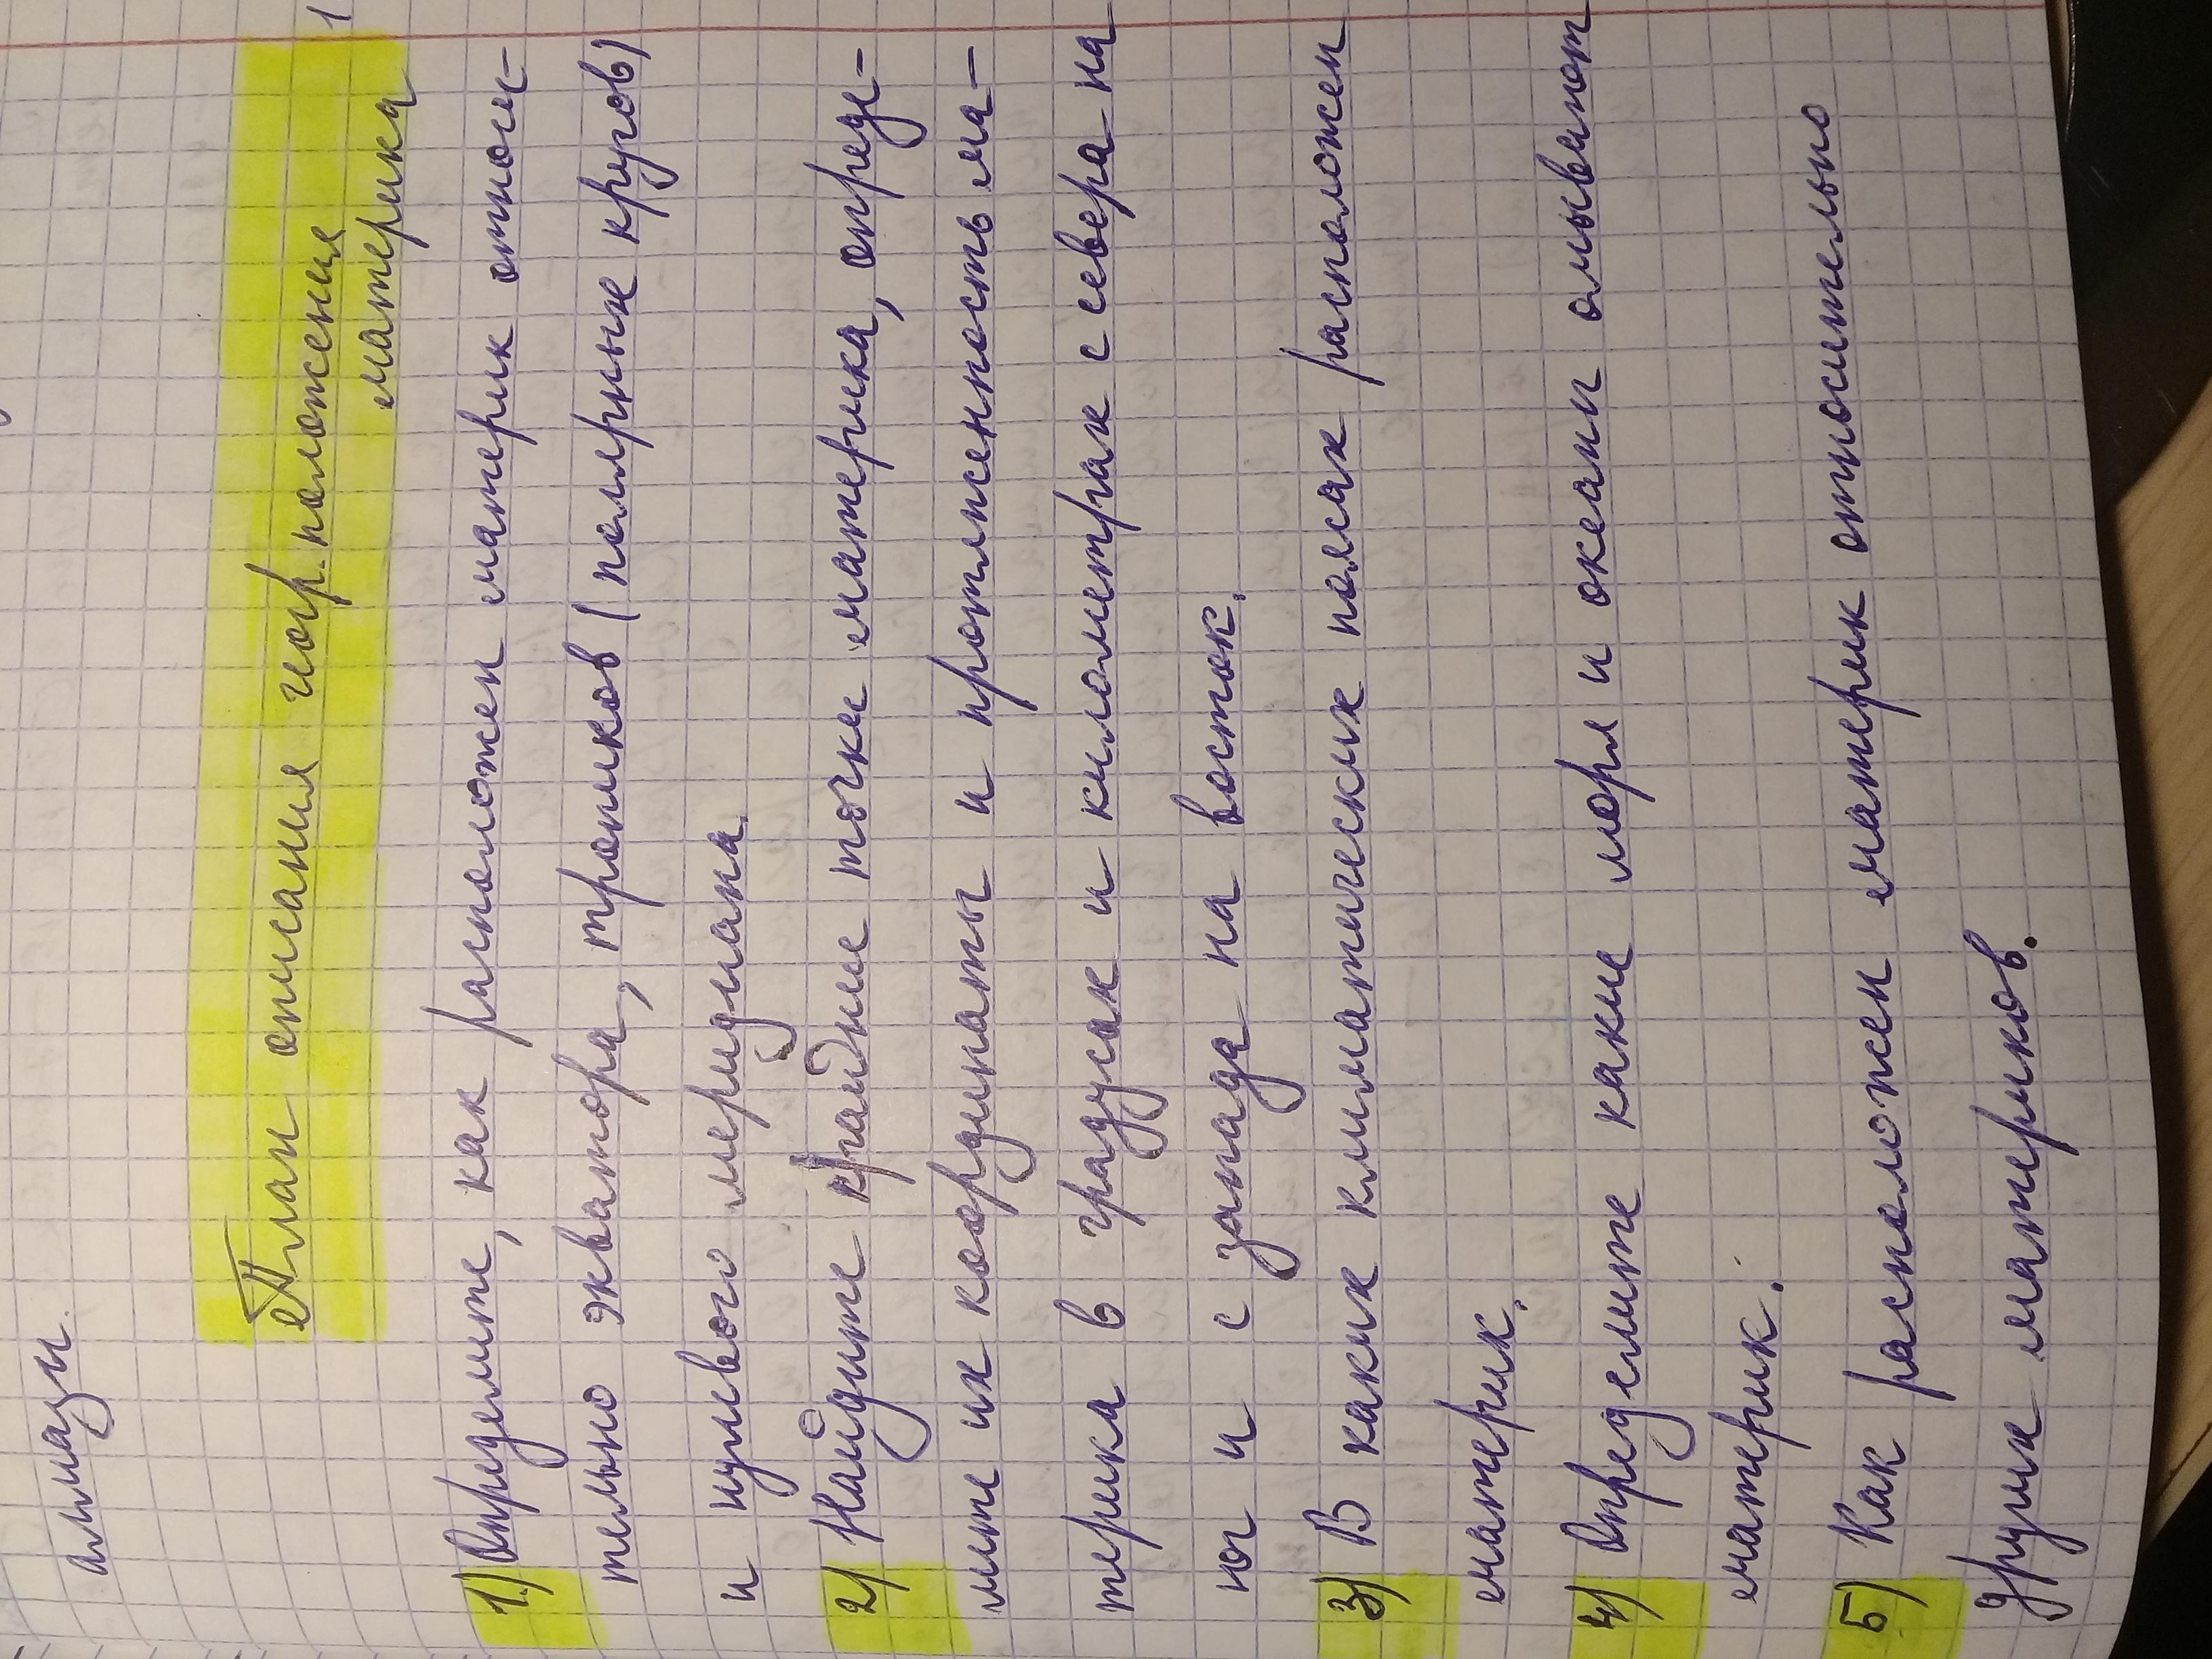 алмазы.
План описания геогр. положения
материка
1) Определите, как расположен материк относи-
тельно экватора, тропиков (полярных кругов)
и нулевого меридиана.
2) Найдите крайние точки материка, опреде-
лите их координаты и протяженность ма-
терика в градусах и километрах с севера на
юг и с запада на восток.
3) В каких климатических поясах расположен
материк.
4) Определите какие моря и океаны омывают
материк.
5) Как расположен материк относительно
других материков.